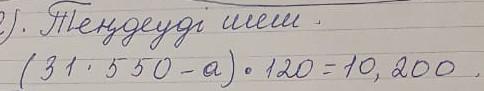 2). Теңдеуді шеш.
(31·550-a)·120=10,200.